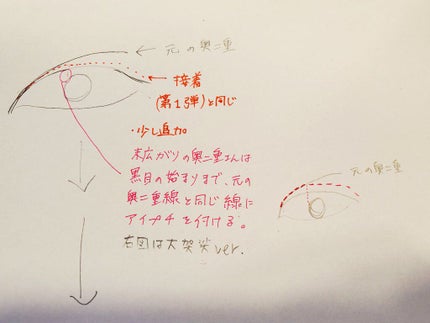 元の奥二重
接着
(第1弾)と同じ
・少し追加
末広がりの奥二重さんは
黒目の始まりまで、元の
奥二重線と同じ線に
アイプチを付ける。
右図は大袈裟ver.
元の奥二重